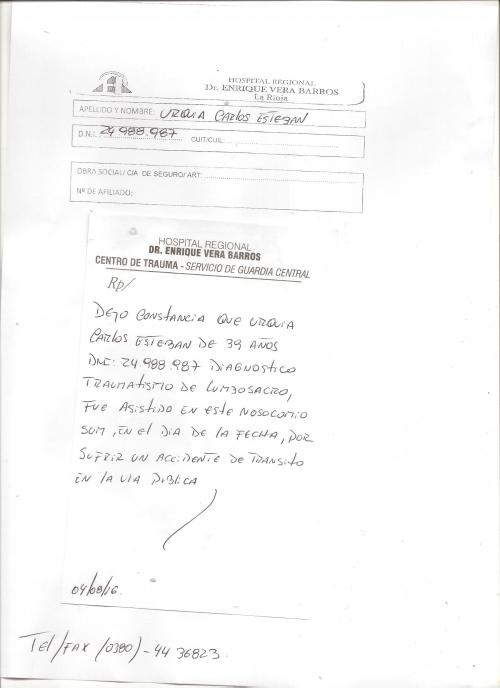 HOSPITAL REGIONAL
Dr. ENRIQUE VERA BARROS
La Rioja
APELLIDO Y NOMBRE: URQUIA CARLOS ESTEBAN
D.N.I. 24.988.987 CUIT/CUIL:
OBRA SOCIAL/ CIA DE SEGURO/ ART:
Nº DE AFILIADO:
HOSPITAL REGIONAL
DR. ENRIQUE VERA BARROS
CENTRO DE TRAUMA - SERVICIO DE GUARDIA CENTRAL
Rp/
DEJO CONSTANCIA QUE URQUIA
CARLOS ESTEBAN DE 39 AÑOS
DNI: 24.988.987 DIAGNOSTICO
TRAUMATISMO DE LUMBOSACRO,
FUE ASISTIDO EN ESTE NOSOCOMIO
SUM, EN EL DIA DE LA FECHA, POR
SUFRIR UN ACCIDENTE DE TRANSITO
EN LA VIA PIBLICA
04/08/16.
Tel/FAX (0380)-44 36823